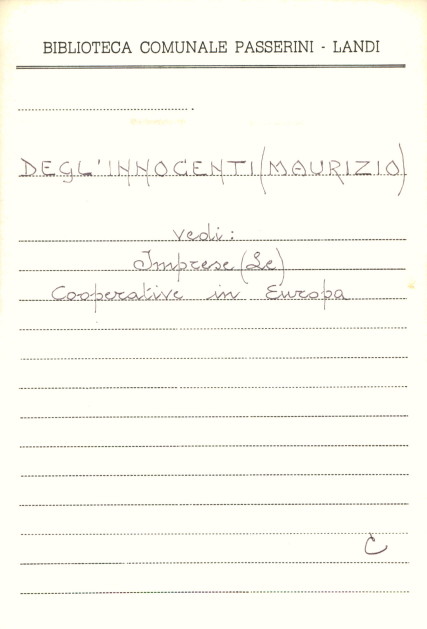 BIBLIOTECA COMUNALE PASSERINI - LANDI
DEGL'INNOCENTI (MAURIZIO)
vedi:
Imprese (Le)
Cooperative in Europa
C